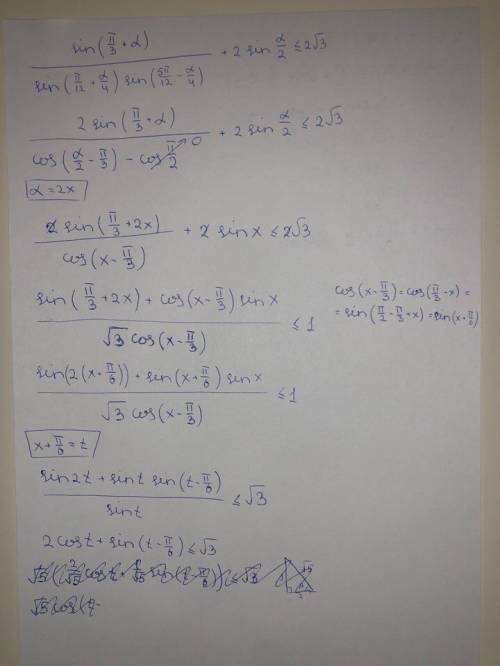 sin(π/3 + α) / sin(π/12 + α/4) sin(5π/12 - α/4) + 2 sin α/2 ≤ 2√3
2 sin(π/3 + α) / cos(α/2 - π/3) - cos π/2 + 2 sin α/2 ≤ 2√3
0
α = 2x
2 sin(π/3 + 2x) / cos(x - π/3) + 2 sin x ≤ 2√3
sin(π/3 + 2x) + cos(x - π/3) sin x / √3 cos(x - π/3) ≤ 1
cos(x - π/3) = cos(π/3 - x) =
= sin(π/2 - π/3 + x) = sin(x + π/6)
sin(2(x + π/6)) + sin(x + π/6) sin x / √3 cos(x - π/3) ≤ 1
x + π/6 = t
sin 2t + sin t sin(t - π/6) / sin t ≤ √3
2 cos t + sin(t - π/6) ≤ √3